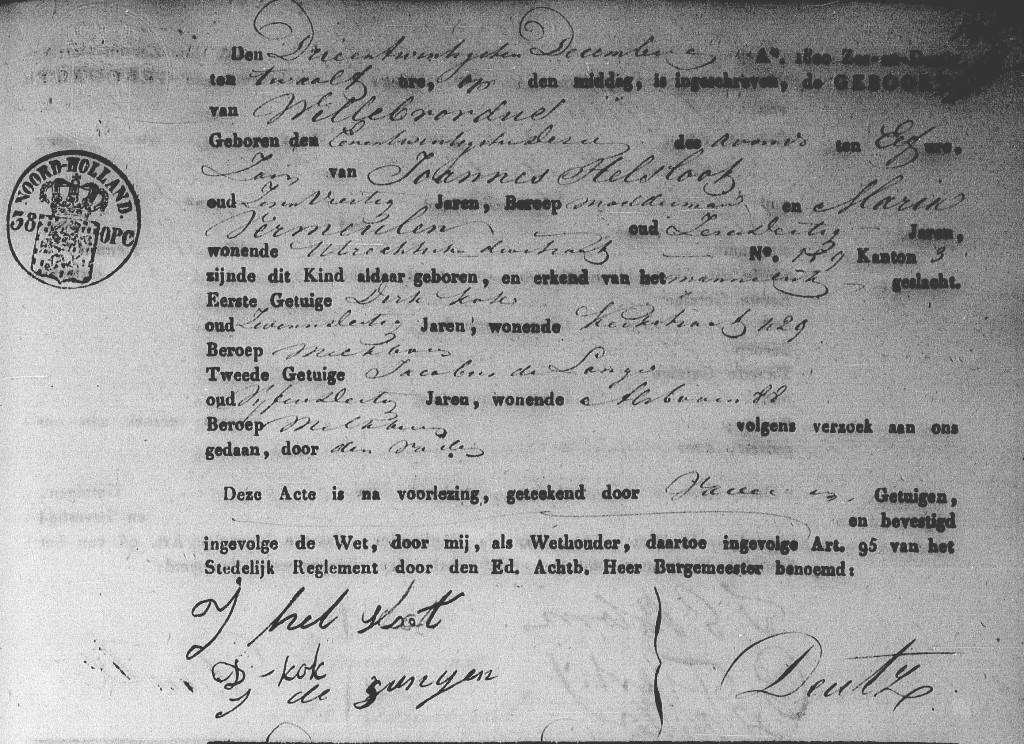 Den Drieentwintigsten December A°. 1800 Zeven-Dertig
ten twaalf ure, op den middag, is ingeschreven, de GEBOORTE
van Willebrordus
Geboren den Eenentwintigsten dezer des avonds ten Elf ure,
Zoon van Joannes Helsloot
oud Jaren, Beroep modderman en Maria
Vermeulen oud Zevendertig Jaren,
wonende Utrechtschedwarsstraat N°. 129 Kanton 3
zijnde dit Kind aldaar geboren, en erkend van het mannelijk geslacht.
Eerste Getuige Dirk Kok
oud Tweeendertig Jaren, wonende Kerkstraat 429
Beroep Melkboer
Tweede Getuige Jacobus de Langen
oud Vijfendertig Jaren, wonende 88
Beroep Melkboer volgens verzoek aan ons
gedaan, door den vader
Deze Acte is na voorlezing, geteekend door Vader en Getuigen,
en bevestigd
ingevolge de Wet, door mij, als Wethouder, daartoe ingevolge Art. 95 van het
Stedelijk Reglement door den Ed. Achtb. Heer Burgemeester benoemd:
NOORD-HOLLAND.
38 OPC
J helsloot
D-kok
J de Langen
Deutz